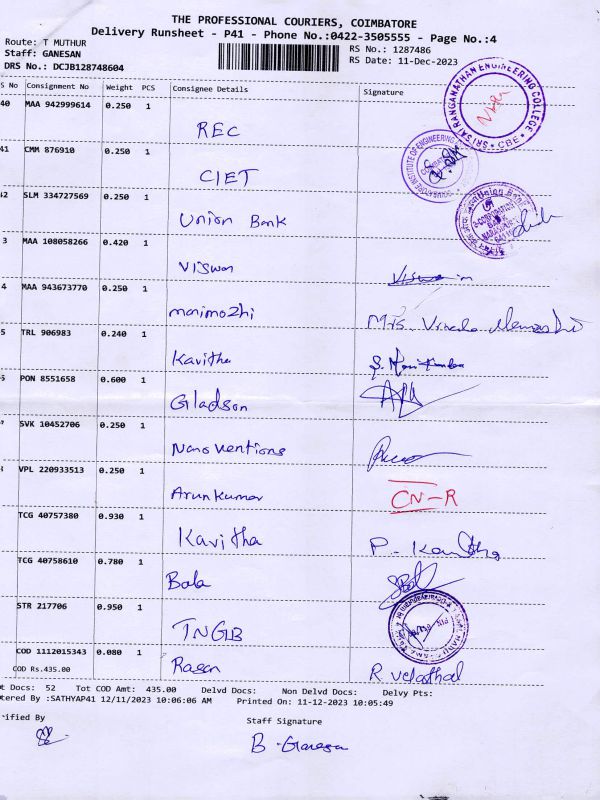 THE PROFESSIONAL COURIERS, COIMBATORE
Delivery Runsheet - P41 - Phone No.:0422-3505555 - Page No.:4
Route: T MUTHUR
Staff: GANESAN
DRS No.: DCJB128748604
RS No.: 1287486
RS Date: 11-Dec-2023
S No Consignment No Weight PCS Consignee Details Signature
40 MAA 942999614 0.250 1 REC
SRI RANGANATHAN ENGINEERING COLLEGE * CBE *
41 CMM 876910 0.250 1 CIET
INSTITUTE OF ENGINEERING
42 SLM 334727569 0.250 1 Union Bank
Union Bank
3 MAA 108058266 0.420 1 Viswan
4 MAA 943673770 0.250 1 manimozhi
5 TRL 906983 0.240 1 Kavitha
PON 8551658 0.600 1 Gladson
SVK 10452706 0.250 1 Nanoventions
VPL 220933513 0.250 1 Arunkumar CN-R
TCG 40757380 0.930 1 Kavitha
TCG 40758610 0.780 1 Bala
STR 217706 0.950 1 TNGB
COD 1112015343 0.080 1 Rasan R velathal
COD Rs.435.00
t Docs: 52 Tot COD Amt: 435.00 Delvd Docs: Non Delvd Docs: Delvy Pts:
tered By :SATHYAP41 12/11/2023 10:06:06 AM Printed On: 11-12-2023 10:05:49
rified By Staff Signature
B. Ganesa